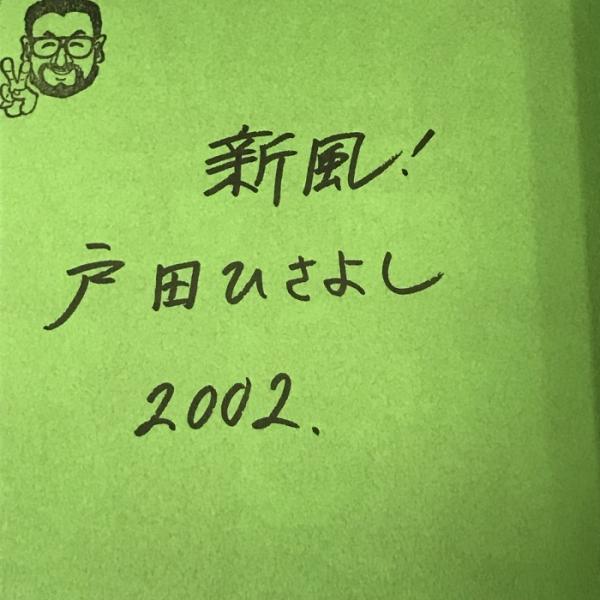 新風!
戸田ひさよし
2002.